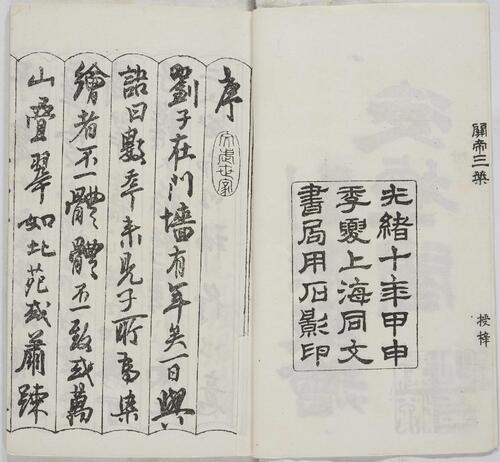 關帝三
授梓
光緒十年甲申
季夏上海同文
書局用石影印
序
劉子在門墻有年矣一日與
詰曰數年來見子所為染
繪者不一體體不一致或萬
山疊翠如北苑或蕭疎